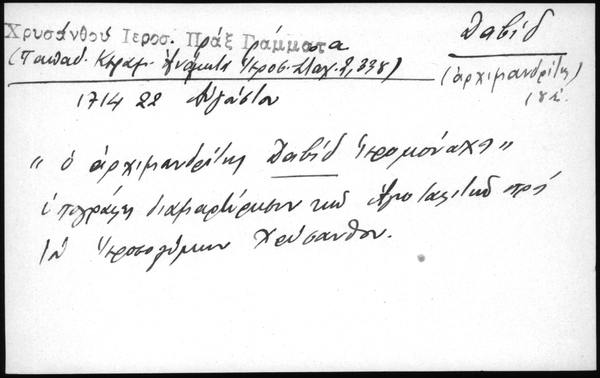 Χρυσάνθου Ιεροσ. Πράξ Γράμματα
Δαβίδ
(Παπαδ. Κεραμ. Ἀνάλεκτα Ἱεροσ. Σταχ. 2, 338)
(ἀρχιμανδρίτης
1714 22 Αὐγούστου
" ὁ ἀρχιμανδρίτης Δαβίδ Ἱερομόναχος"
ὑπογράφει διαμαρτύρησιν τοῦ πρός
τόν Ἱεροσολύμων Χρύσανθον.